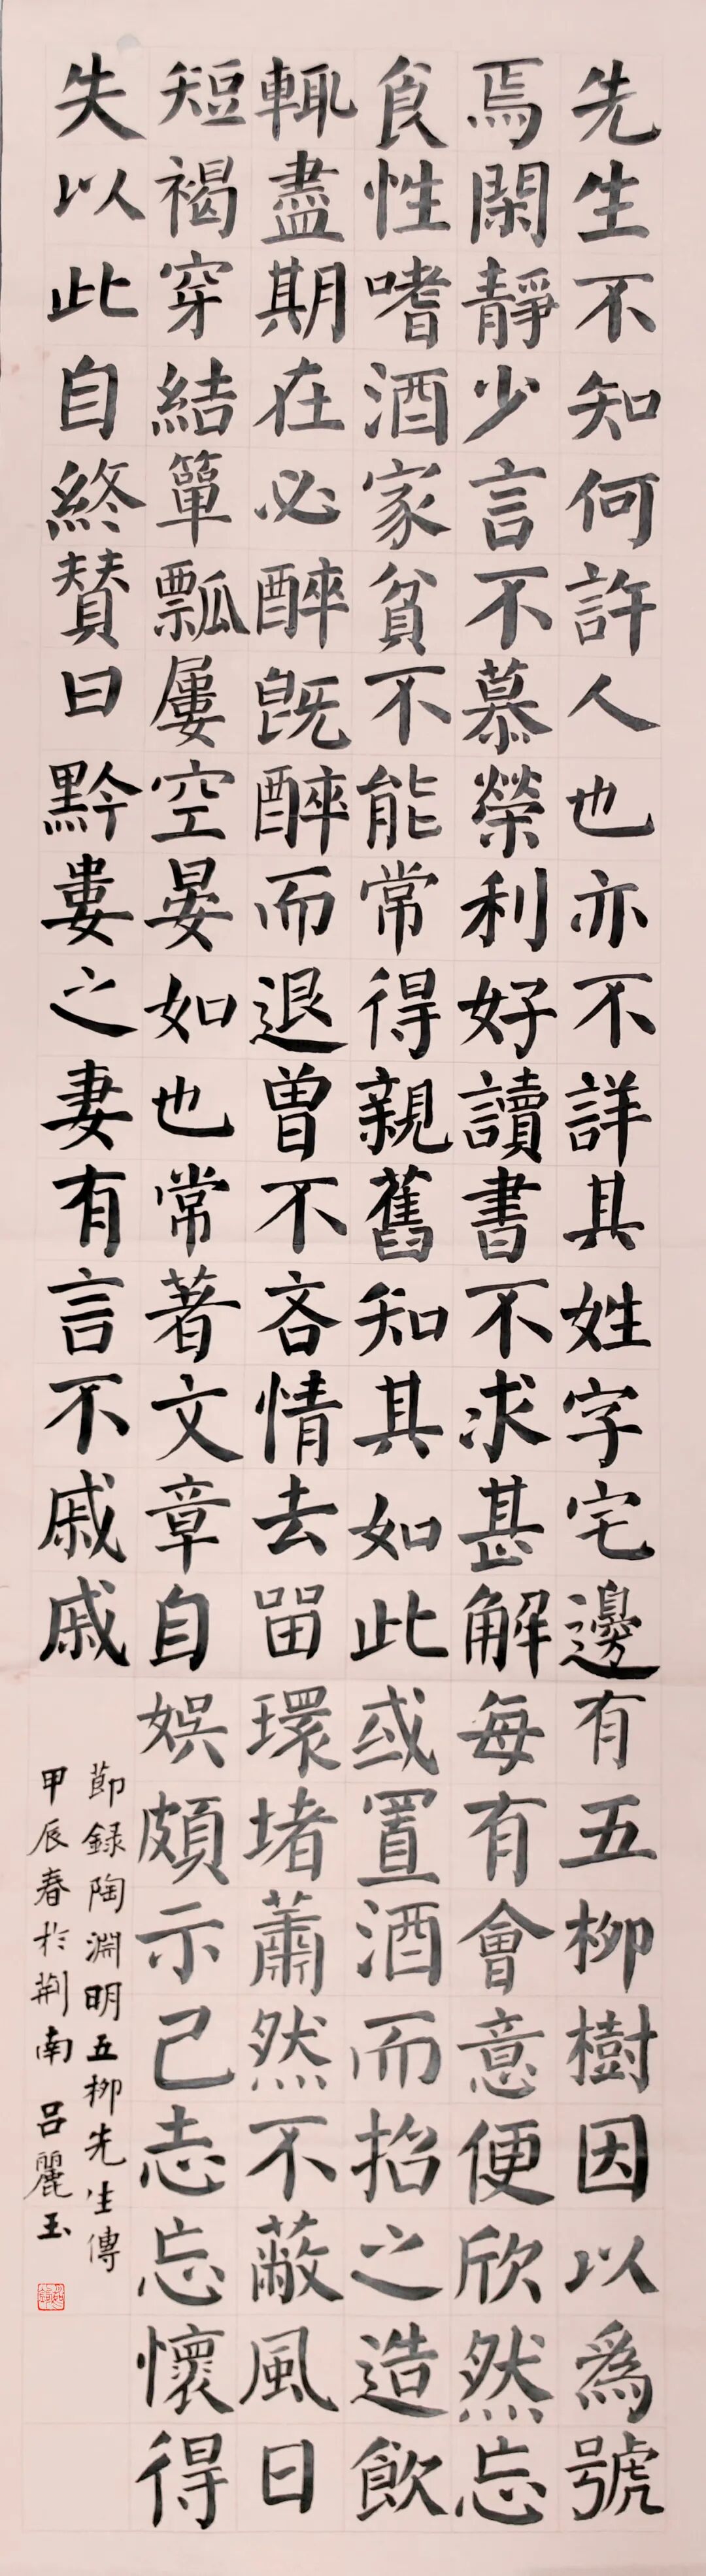 先生不知何許人也亦不詳其姓字宅邊有五柳樹因以為號
焉閑靜少言不慕榮利好讀書不求甚解每有會意便欣然忘
食性嗜酒家貧不能常得親舊知其如此或置酒而招之造飲
輒盡期在必醉既醉而退曾不吝情去留環堵蕭然不蔽風日
短褐穿結簞瓢屢空晏如也常著文章自娛頗示己志忘懷得
失以此自終贊曰黔婁之妻有言不戚戚
節錄陶淵明五柳先生傳
甲辰春於荊南呂麗玉